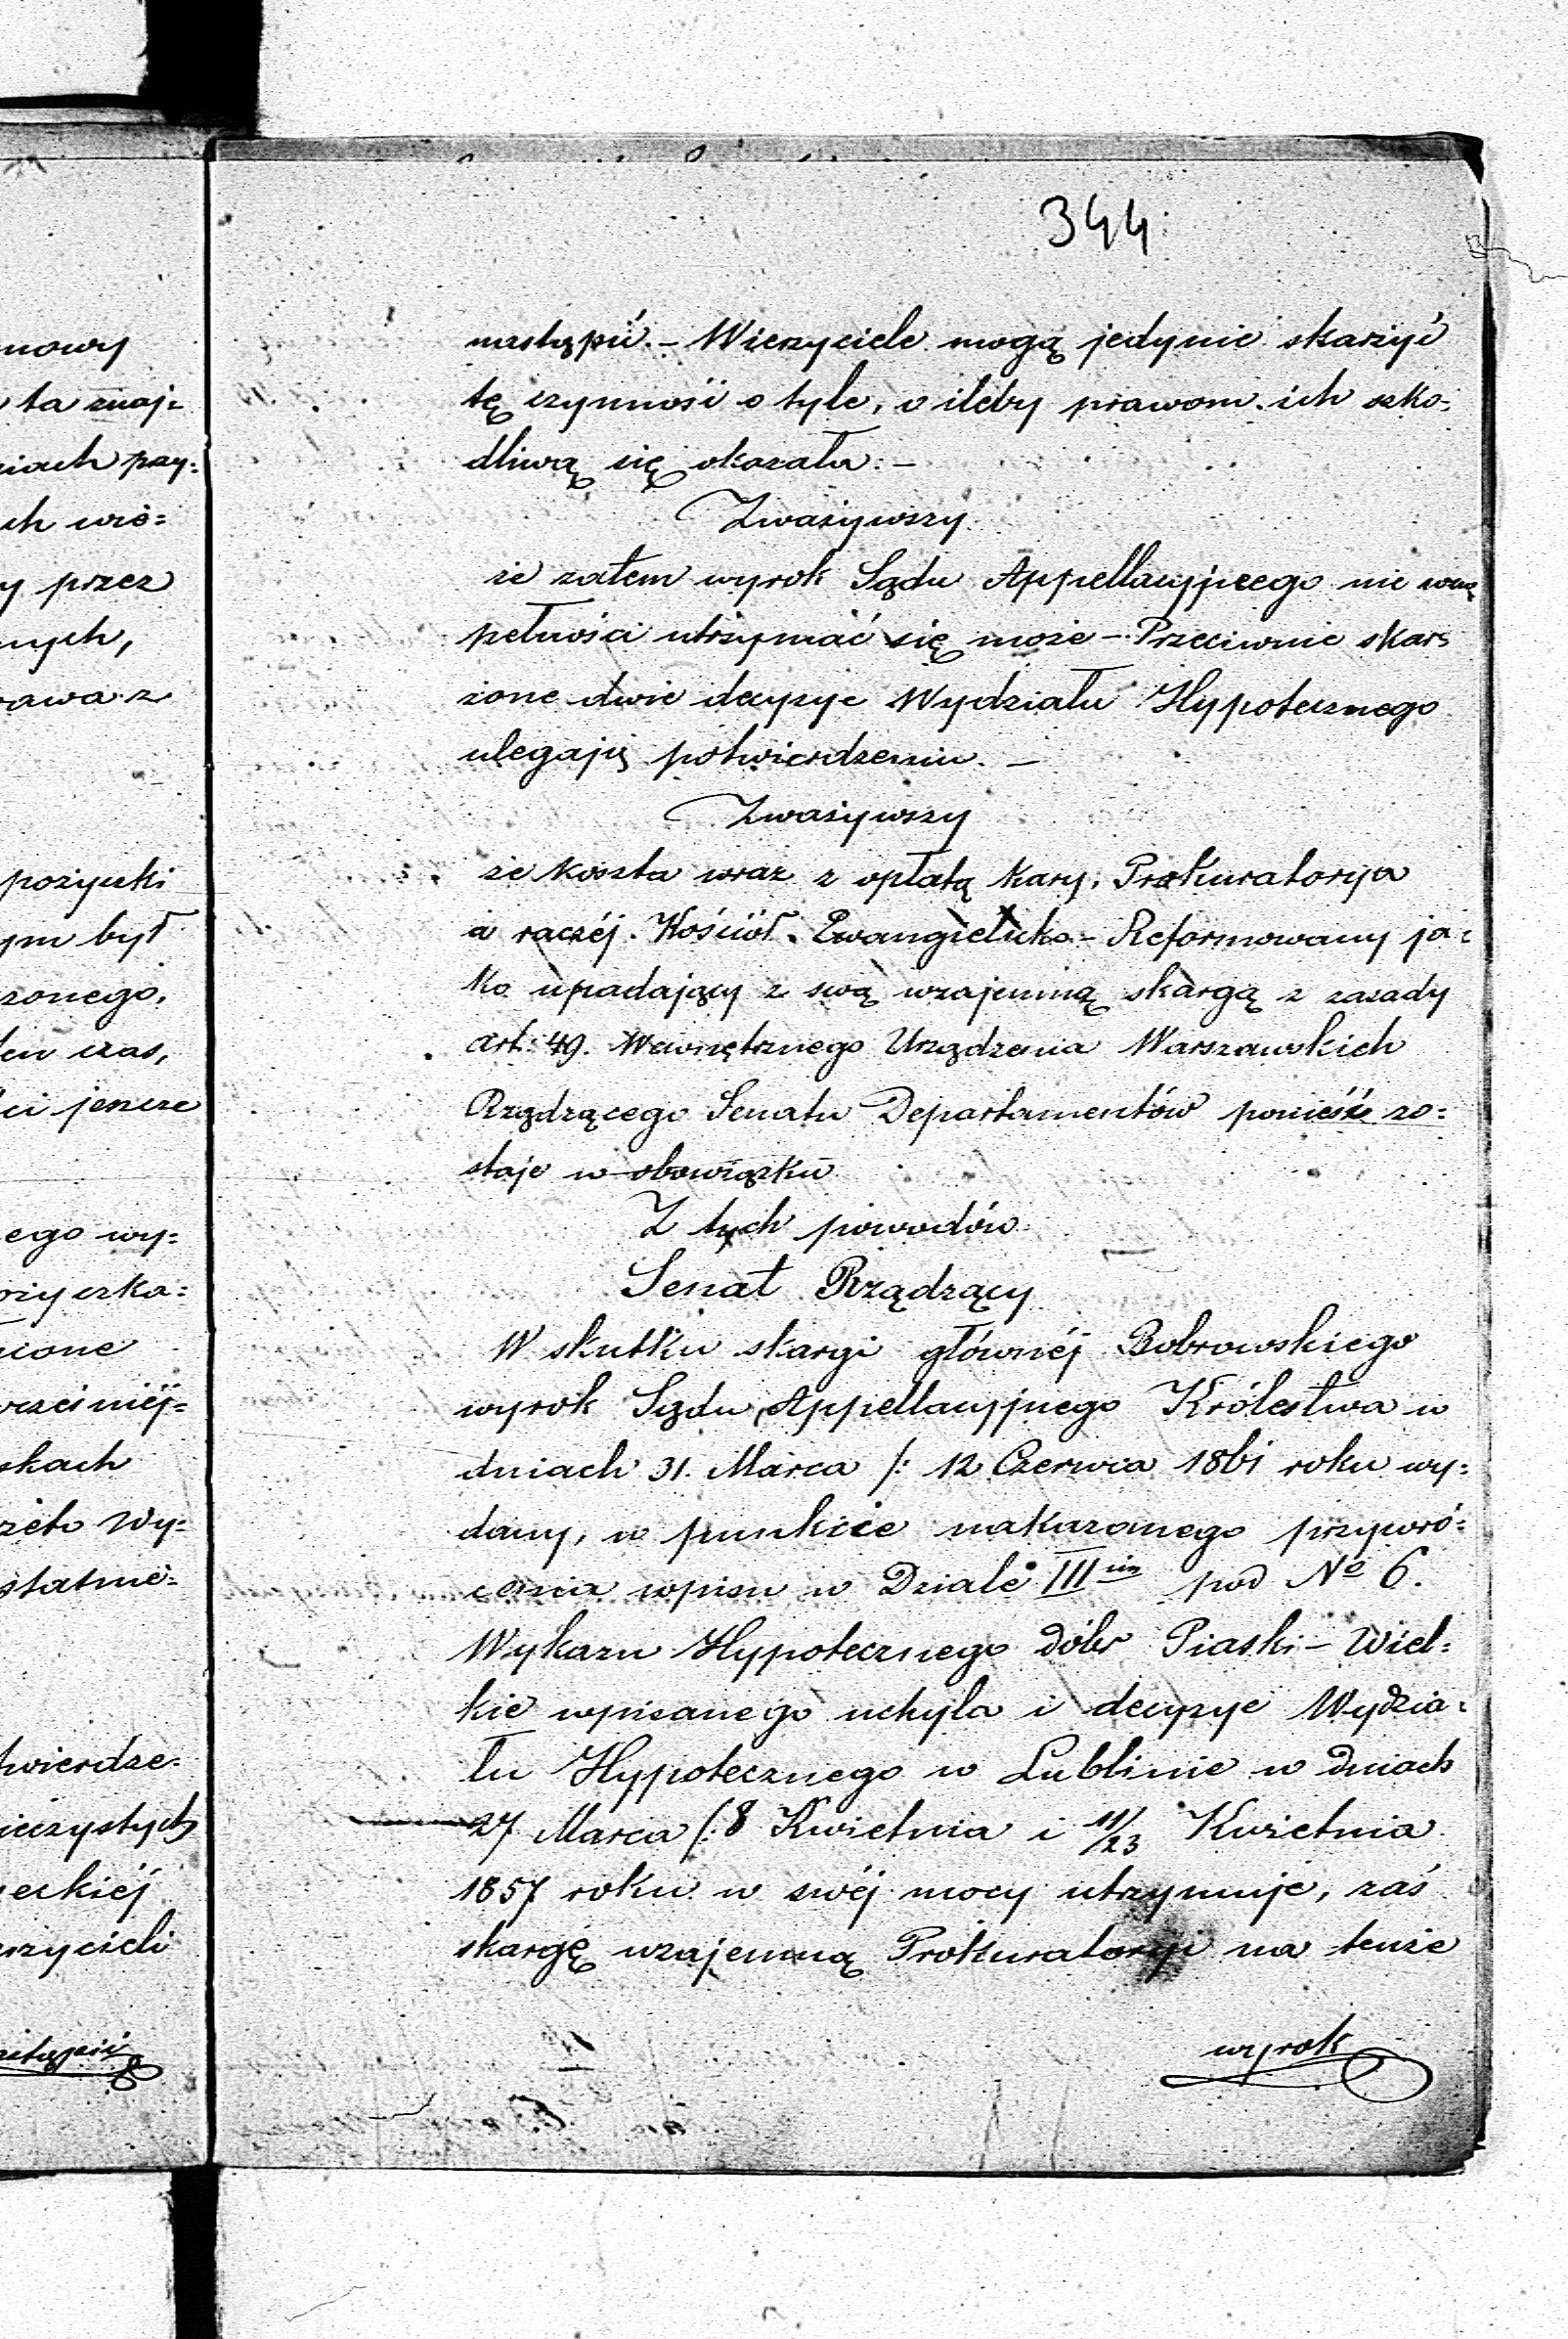 344
nastąpić. – Wierzyciele mogą jedynie skarżyć
tę czynność o tyle, o ileby prawom ich szko-
dliwą się okazała. –
Zważywszy
że zatem wyrok Sądu Appellacyjnego nie w
pełności utrzymać się może – Przeciwnie skar=
żone dwie decyzye Wydziału Hypotecznego
ulegają potwierdzeniu. –
Zważywszy
że koszta wraz z opłatą kary, Prokuratorya
a raczéj Kościół Ewangielicko – Reformowany ja=
ko upadający z swą wzajemną skargą z zasady
art: 49. Wewnętrznego Urządzenia Warszawskich
Rządzącego Senatu Departamentów ponieść zo=
staje w obowiązku
Z tych powodów
Senat Rządzący
W skutku skargi głównéj Bobrowskiego
wyrok Sądu Appellacyjnego Królestwa w
dniach 31. Marca /: 12 Czerwca 1861 roku wy=
dany, w punkcie nakazanego przywró=
cenia wpisu w Dziale III im pod No 6.
Wykazu Hypotecznego dóbr Piaski – Wiel=
kie wpisanego uchyla i decyzye Wydzia=
łu Hypotecznego w Lublinie w dniach
27 Marca /: 8 Kwietnia i 11/23 Kwietnia
1857 roku w swéj mocy utrzymuje, zaś
skargę wzajemną Prokuratoryi na tenże
wyrok